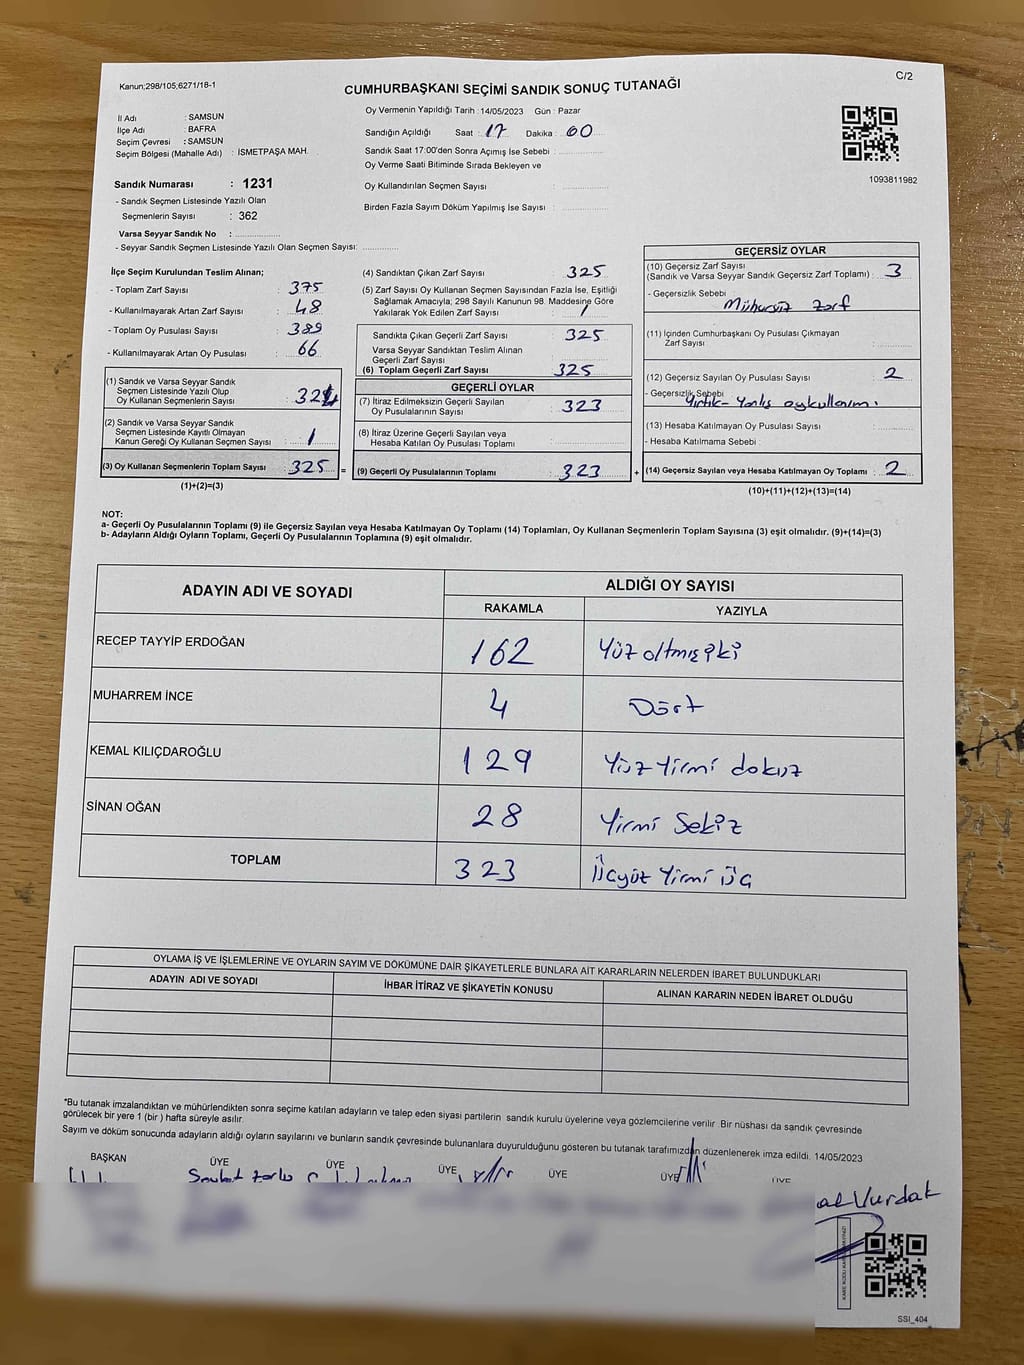 Kanun;298/105;6271/18-1
C/2
CUMHURBAŞKANI SEÇİMİ SANDIK SONUÇ TUTANAĞI
İl Adı : SAMSUN
İlçe Adı : BAFRA
Seçim Çevresi : SAMSUN
Seçim Bölgesi (Mahalle Adı) : İSMETPAŞA MAH.
Sandık Numarası : 1231
- Sandık Seçmen Listesinde Yazılı Olan
Seçmenlerin Sayısı : 362
Varsa Seyyar Sandık No :
- Seyyar Sandık Seçmen Listesinde Yazılı Olan Seçmen Sayısı:
Oy Vermenin Yapıldığı Tarih : 14/05/2023 Gün : Pazar
Sandığın Açıldığı Saat : 17 Dakika : 00
Sandık Saat 17:00'den Sonra Açımış İse Sebebi :
Oy Verme Saati Bitiminde Sırada Bekleyen ve
Oy Kullandırılan Seçmen Sayısı :
Birden Fazla Sayım Döküm Yapılmış İse Sayısı :
1093811982
İlçe Seçim Kurulundan Teslim Alınan;
- Toplam Zarf Sayısı : 375
- Kullanılmayarak Artan Zarf Sayısı : 48
- Toplam Oy Pusulası Sayısı : 389
- Kullanılmayarak Artan Oy Pusulası : 66
(1) Sandık ve Varsa Seyyar Sandık
Seçmen Listesinde Yazılı Olup
Oy Kullanan Seçmenlerin Sayısı : 324
(2) Sandık ve Varsa Seyyar Sandık
Seçmen Listesinde Kayıtlı Olmayan
Kanun Gereği Oy Kullanan Seçmen Sayısı : 1
(3) Oy Kullanan Seçmenlerin Toplam Sayısı : 325 =
(1)+(2)=(3)
(4) Sandıktan Çıkan Zarf Sayısı : 325
(5) Zarf Sayısı Oy Kullanan Seçmen Sayısından Fazla İse, Eşitliği
Sağlamak Amacıyla; 298 Sayılı Kanunun 98. Maddesine Göre
Yakılarak Yok Edilen Zarf Sayısı :
Sandıkta Çıkan Geçerli Zarf Sayısı : 325
Varsa Seyyar Sandıktan Teslim Alınan
Geçerli Zarf Sayısı :
(6) Toplam Geçerli Zarf Sayısı : 325
GEÇERLİ OYLAR
(7) İtiraz Edilmeksizin Geçerli Sayılan
Oy Pusulalarının Sayısı : 323
(8) İtiraz Üzerine Geçerli Sayılan veya
Hesaba Katılan Oy Pusulası Toplamı :
(9) Geçerli Oy Pusulalarının Toplamı : 323 +
GEÇERSİZ OYLAR
(10) Geçersiz Zarf Sayısı
(Sandık ve Varsa Seyyar Sandık Geçersiz Zarf Toplamı) : 3
- Geçersizlik Sebebi :
Mühürsüz zarf
(11) İçinden Cumhurbaşkanı Oy Pusulası Çıkmayan
Zarf Sayısı :
(12) Geçersiz Sayılan Oy Pusulası Sayısı : 2
- Geçersizlik Sebebi
Yırtık - Yanlış oy kullanım.
(13) Hesaba Katılmayan Oy Pusulası Sayısı :
- Hesaba Katılmama Sebebi :
(14) Geçersiz Sayılan veya Hesaba Katılmayan Oy Toplamı : 2
(10)+(11)+(12)+(13)=(14)
NOT:
a- Geçerli Oy Pusulalarının Toplamı (9) ile Geçersiz Sayılan veya Hesaba Katılmayan Oy Toplamı (14) Toplamları, Oy Kullanan Seçmenlerin Toplam Sayısına (3) eşit olmalıdır. (9)+(14)=(3)
b- Adayların Aldığı Oyların Toplamı, Geçerli Oy Pusulalarının Toplamına (9) eşit olmalıdır.
ADAYIN ADI VE SOYADI
ALDIĞI OY SAYISI
RAKAMLA YAZIYLA
RECEP TAYYİP ERDOĞAN 162 Yüz altmış iki
MUHARREM İNCE 4 Dört
KEMAL KILIÇDAROĞLU 129 Yüz Yirmi dokuz
SİNAN OĞAN 28 Yirmi Sekiz
TOPLAM 323 Üçyüz Yirmi üç
OYLAMA İŞ VE İŞLEMLERİNE VE OYLARIN SAYIM VE DÖKÜMÜNE DAİR ŞİKAYETLERLE BUNLARA AİT KARARLARIN NELERDEN İBARET BULUNDUKLARI
ADAYIN ADI VE SOYADI İHBAR İTİRAZ VE ŞİKAYETİN KONUSU ALINAN KARARIN NEDEN İBARET OLDUĞU
*Bu tutanak imzalandıktan ve mühürlendikten sonra seçime katılan adayların ve talep eden siyasi partilerin sandık kurulu üyelerine veya gözlemcilerine verilir. Bir nüshası da sandık çevresinde
görülecek bir yere 1 (bir ) hafta süreyle asılır.
Sayım ve döküm sonucunda adayların aldığı oyların sayılarını ve bunların sandık çevresinde bulunanlara duyurulduğunu gösteren bu tutanak tarafımızdan düzenlenerek imza edildi. 14/05/2023
BAŞKAN ÜYE ÜYE ÜYE ÜYE ÜYE ÜYE
Vurdak
SSI_404